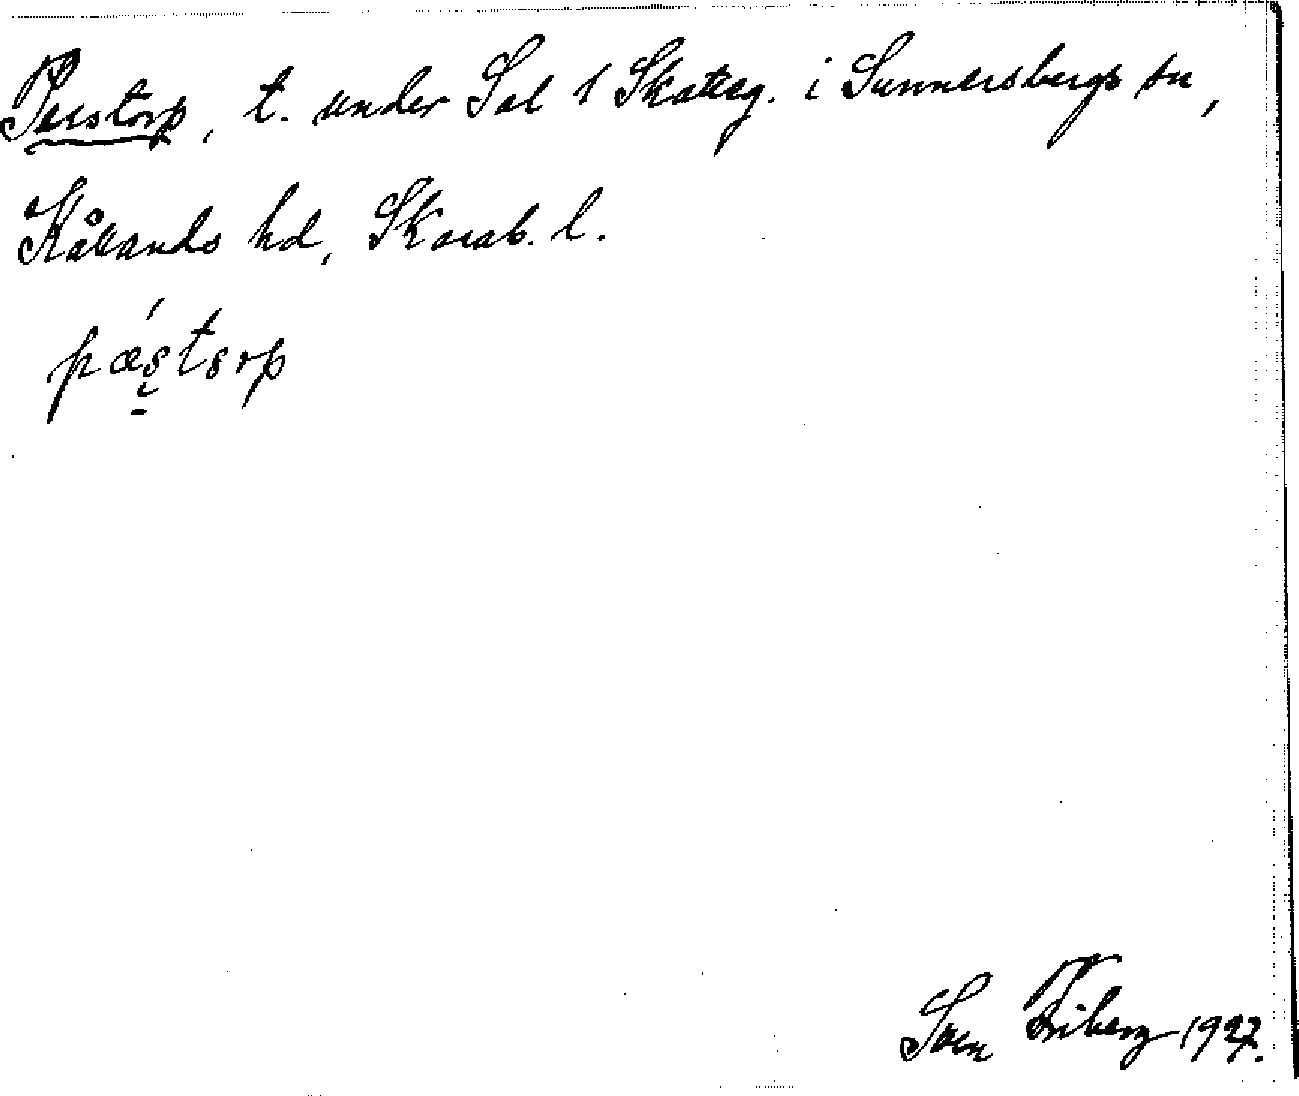 Perstorp, t. under Sal 1 Skatteg. i Sunnersbergs sn,
Kållands hd, Skarab. l.
pæstorp
Sven Friberg 1927.